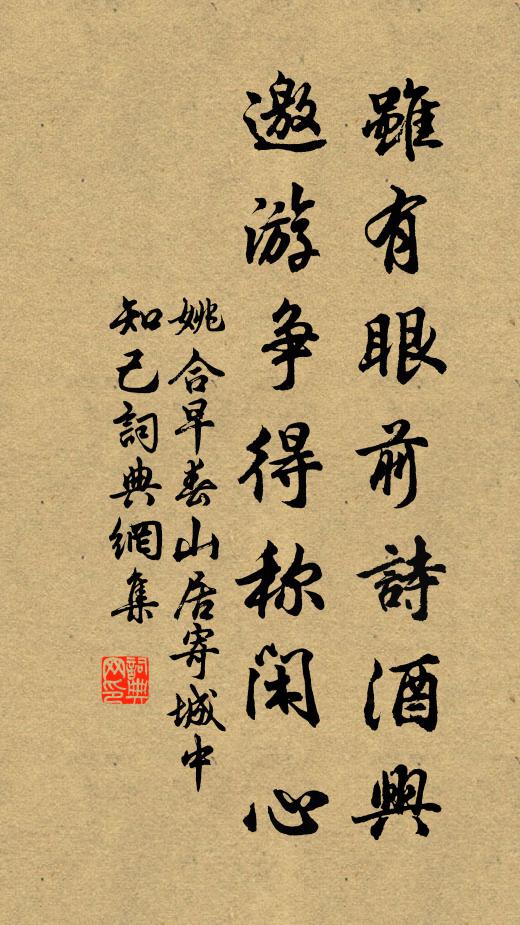 雖有眼前詩酒興
邀游爭得称閑心
姚合早春山居寄城中
知己詞典網集
詞典网印